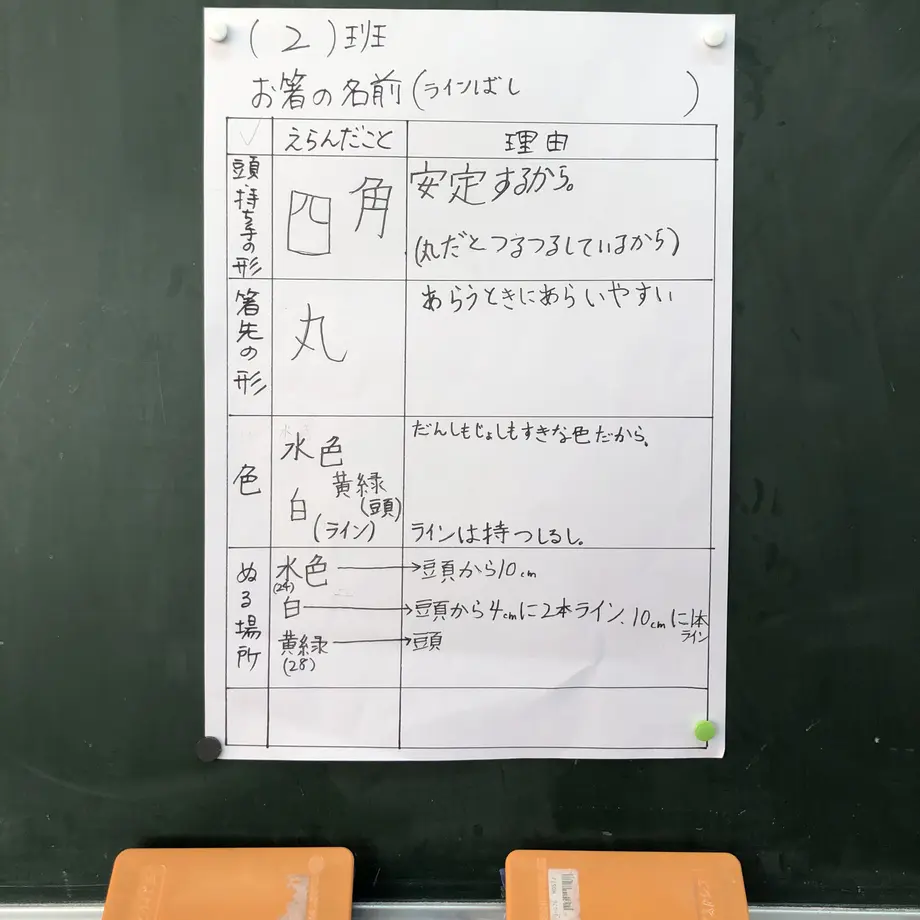 (2)班
お箸の名前(ラインばし)
えらんだこと 理由
頭・持ち手の形 四角 安定するから。
(丸だとつるつるしているから)
箸先の形 丸 あらうときにあらいやすい
色 水色 だんしもじょしもすきな色だから。
黄緑
(頭)
白
(ライン) ラインは持つしるし。
ぬる場所 水色 → 頭から10cm
(24)
白 → 頭から4cmに2本ライン、10cmに1本ライン
黄緑 → 頭
(28)